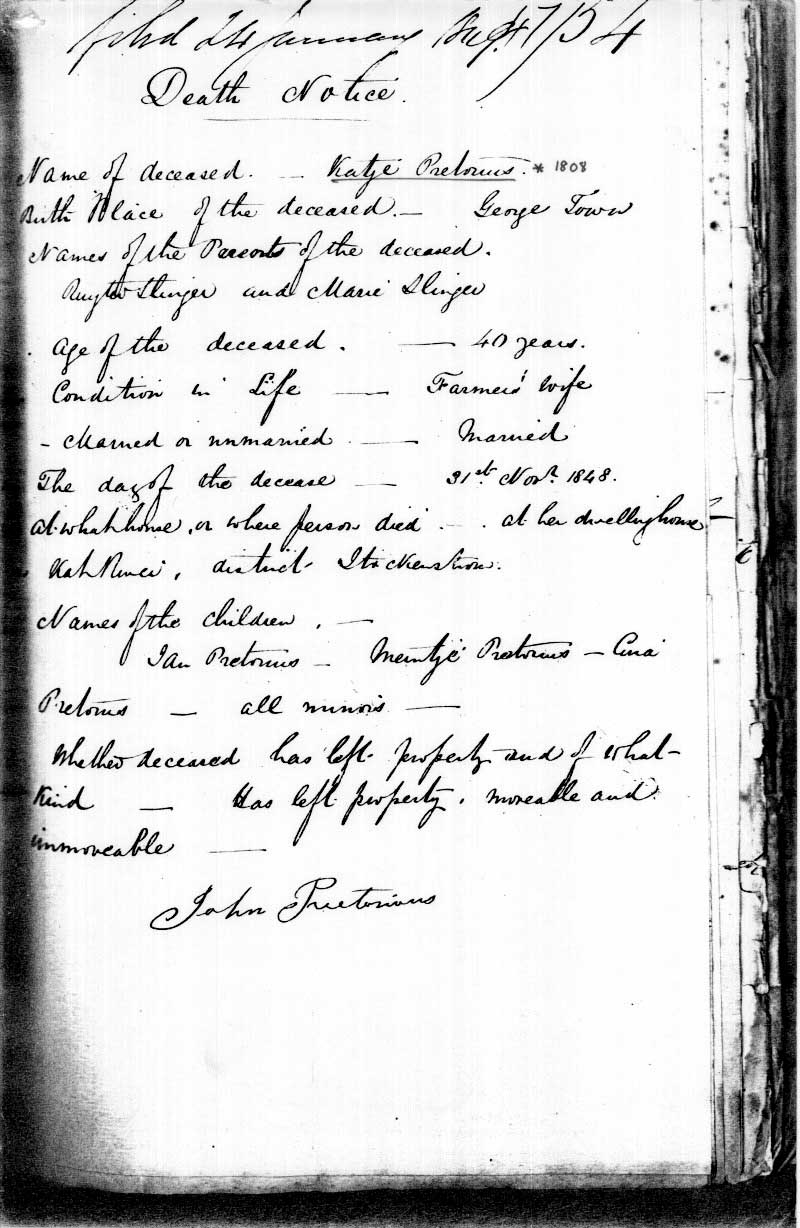 filed 24 January
Death Notice.
Name of deceased. — Katje Pretorius. * 1808
Birth Place of the deceased. — George Town
Names of the Parents of the deceased.
Slinger and Marie Slinger
Age of the deceased. — 40 years.
Condition in Life — Farmers' wife
- Married or unmarried — Married
The day of the decease — 31st Novr. 1848.
at what house, or where person died - . at her dwelling house
Kat River, district Stockenstrom.
Names of the children. —
Jan Pretorius — Meintje Pretorius —
Pretorius — all minors —
Whether deceased has left property and of what
Kind — Has left property, moveable and
immoveable —
John Pretorious